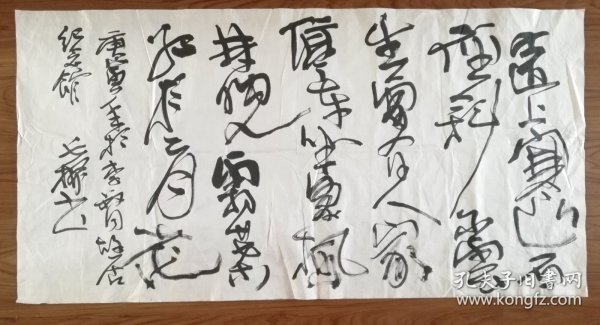 遠上寒山石
徑斜白雲
生處有人家
停车坐爱枫
林晚霜葉
红於二月花
庚寅年於李故居
纪念馆 书
孔夫子旧书网
www.kongfz.com